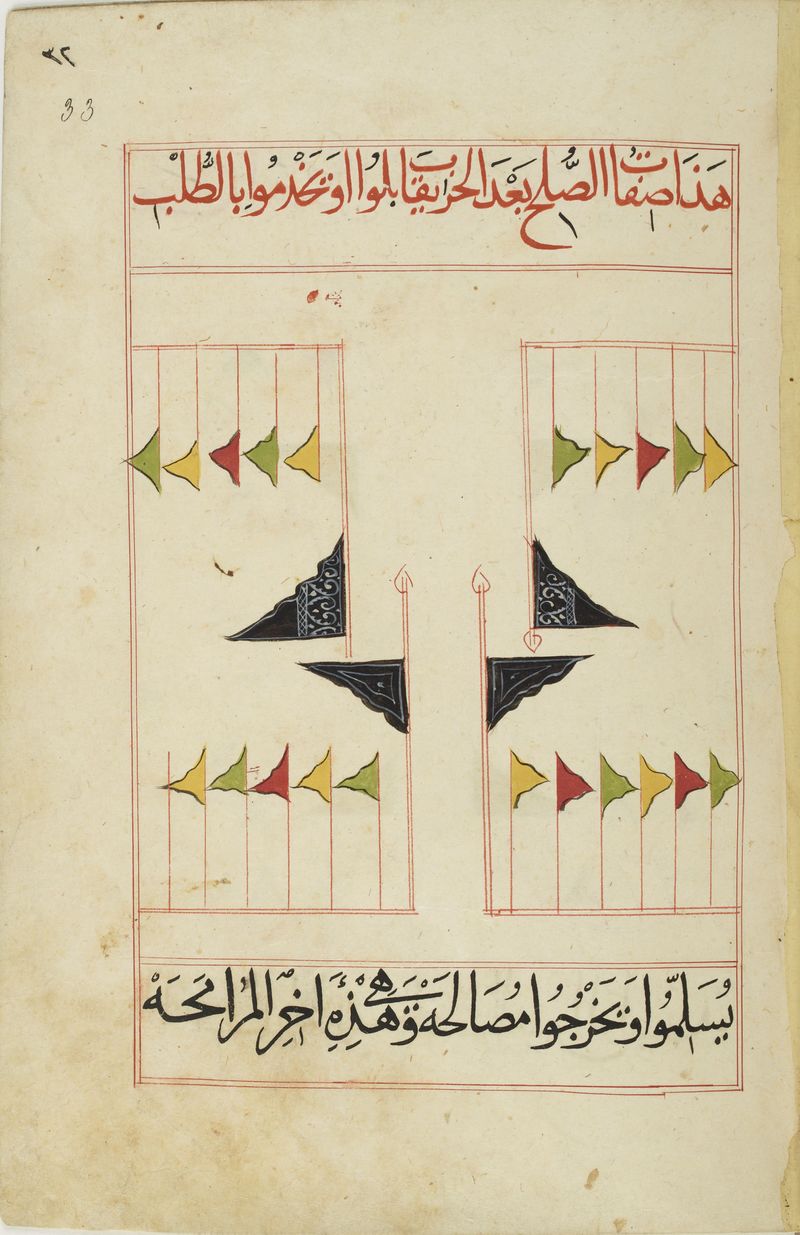 ٣٢
33
هَذَا صفات الصُّلح بَعْدَ الحرب يقابلموا اوَ يَخْدموا با الطُّلبْ
يُسَلِّموُا وَ يَخْرُجُوا مُصَالحَة وَ هَىْ هَذِهِ اَخِرْ المُرَامَحَهْ